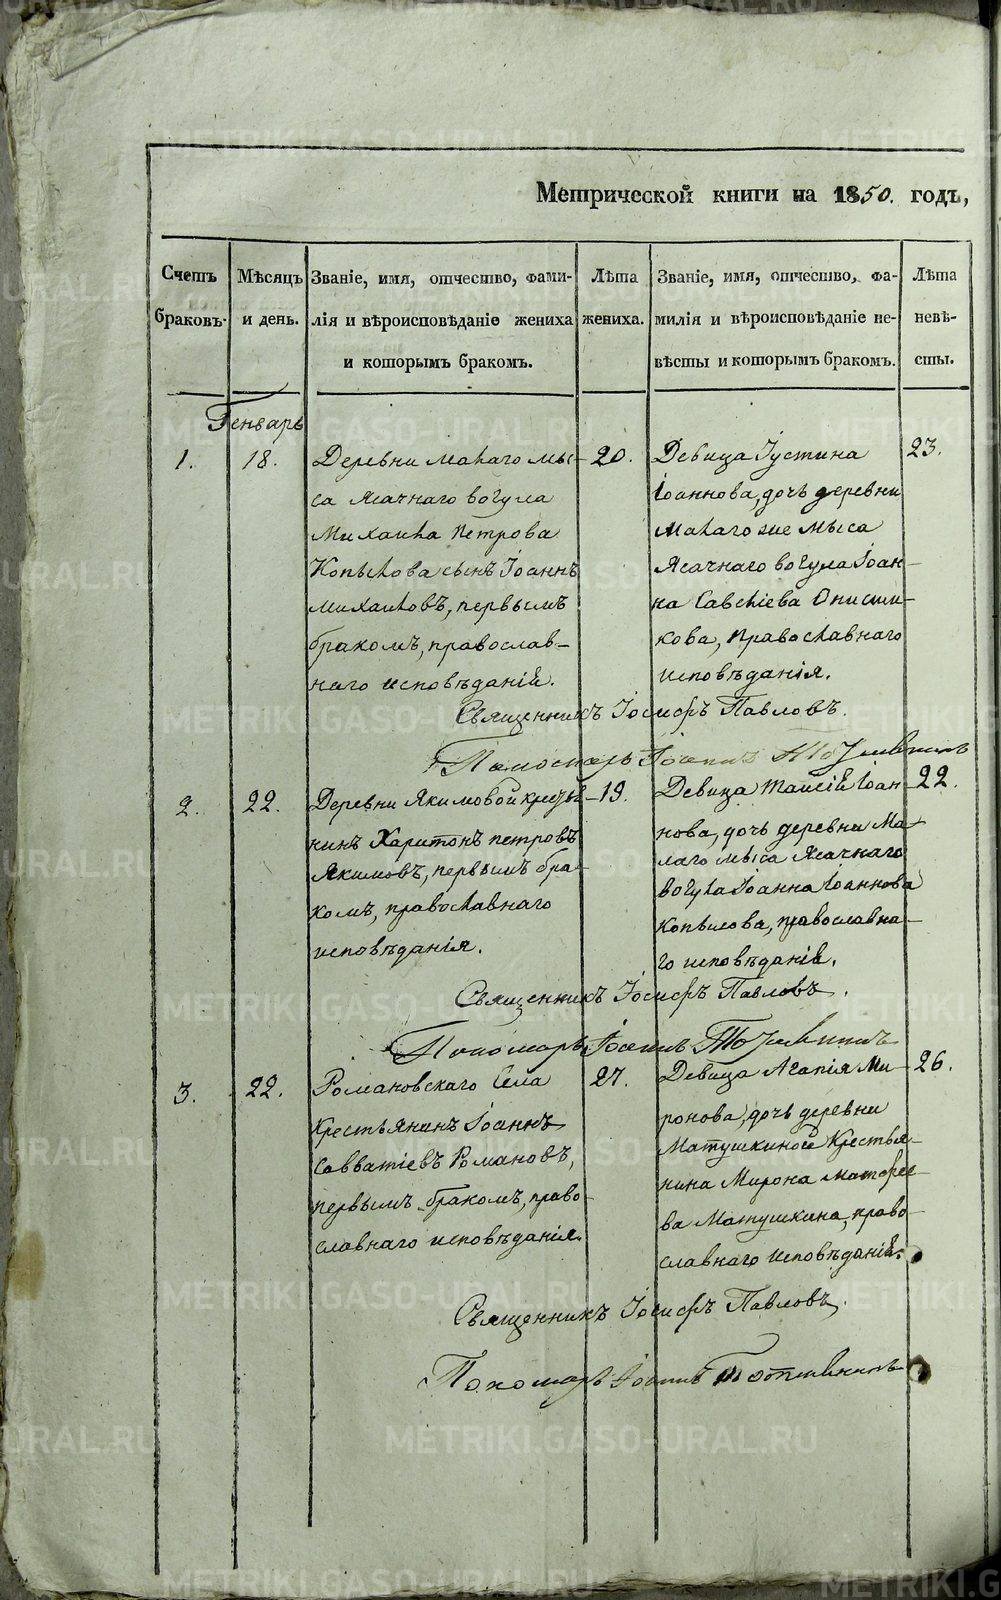 Метрической книги на 1850. годъ,
Счетъ браковъ.
Мѣсяцъ и день.
Званіе, имя, отчество, фами-
лія и вѣроисповѣданіе жениха
и которымъ бракомъ.
Лѣта
жениха.
Званіе, имя, отчество, фа-
милія и вѣроисповѣданіе не-
вѣсты и которымъ бракомъ.
Лѣта
невѣ-
сты.
Генварь
1.
18.
Деревни малаго мы-
са Ясачнаго вогула
Михаила Петрова
Копылова сынъ Іоаннъ
михаиловъ, первымъ
бракомъ, православ-
наго исповѣданій.
20.
Девица Іустина
Іоаннова, дочь деревни
Малаго же мыса
Ясачнаго вогула Іоан-
на Савѣіева
кова, Православнаго
исповѣданія.
23.
Священникъ Іосифъ Павловъ.
Пономарь
2.
22.
Деревни Якимовой кресть-
нинъ Харитонъ петровъ
Якимовъ, первымъ бра-
комъ, православнаго
исповѣданія.
19.
Девица Таисій Іоан-
нова, дочь деревни Ма-
лаго мыса Ясачнаго
вогула Іоанна Іоаннова
Копылова, православна-
го исповѣданій.
22.
Священникъ Іосифъ Павловъ.
Пономарь
3.
22.
Романовскаго Села
Крестьянинъ Іоаннъ
Савватіевъ Романовъ,
первымъ бракомъ, право-
славнаго исповѣданія.
27.
Девица Агапія Ми-
ронова, дочь деревни
Матушкиной Крестья-
нина Мирона Матфее-
ва Матушкина, право-
славнаго исповѣданій.
26.
Священникъ Іосифъ Павловъ.
Пономарь
METRIKI.GASO-URAL.RU